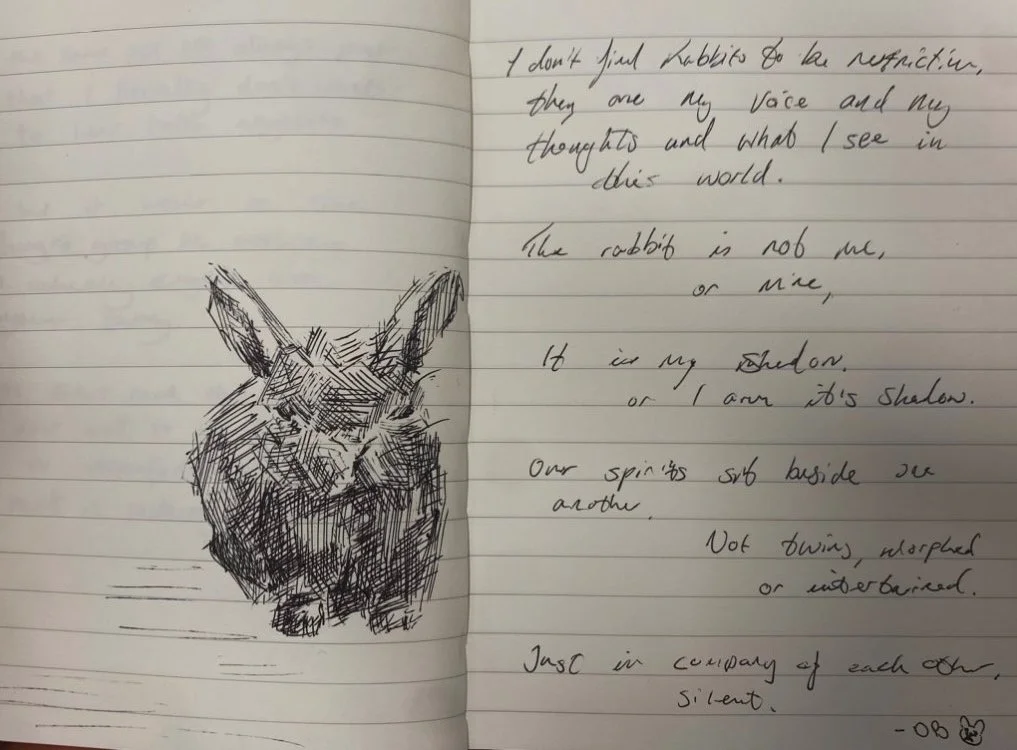 I don't find rabbits to be restrictive,
they are my voice and my
thoughts and what I see in
this world.
The rabbit is not me,
or mine,
It is my shadow.
or I am it's shadow.
Our spirits sit beside one
another.
Not twins, morphed
or intertwined.
Just in company of each other,
silent.
- OB